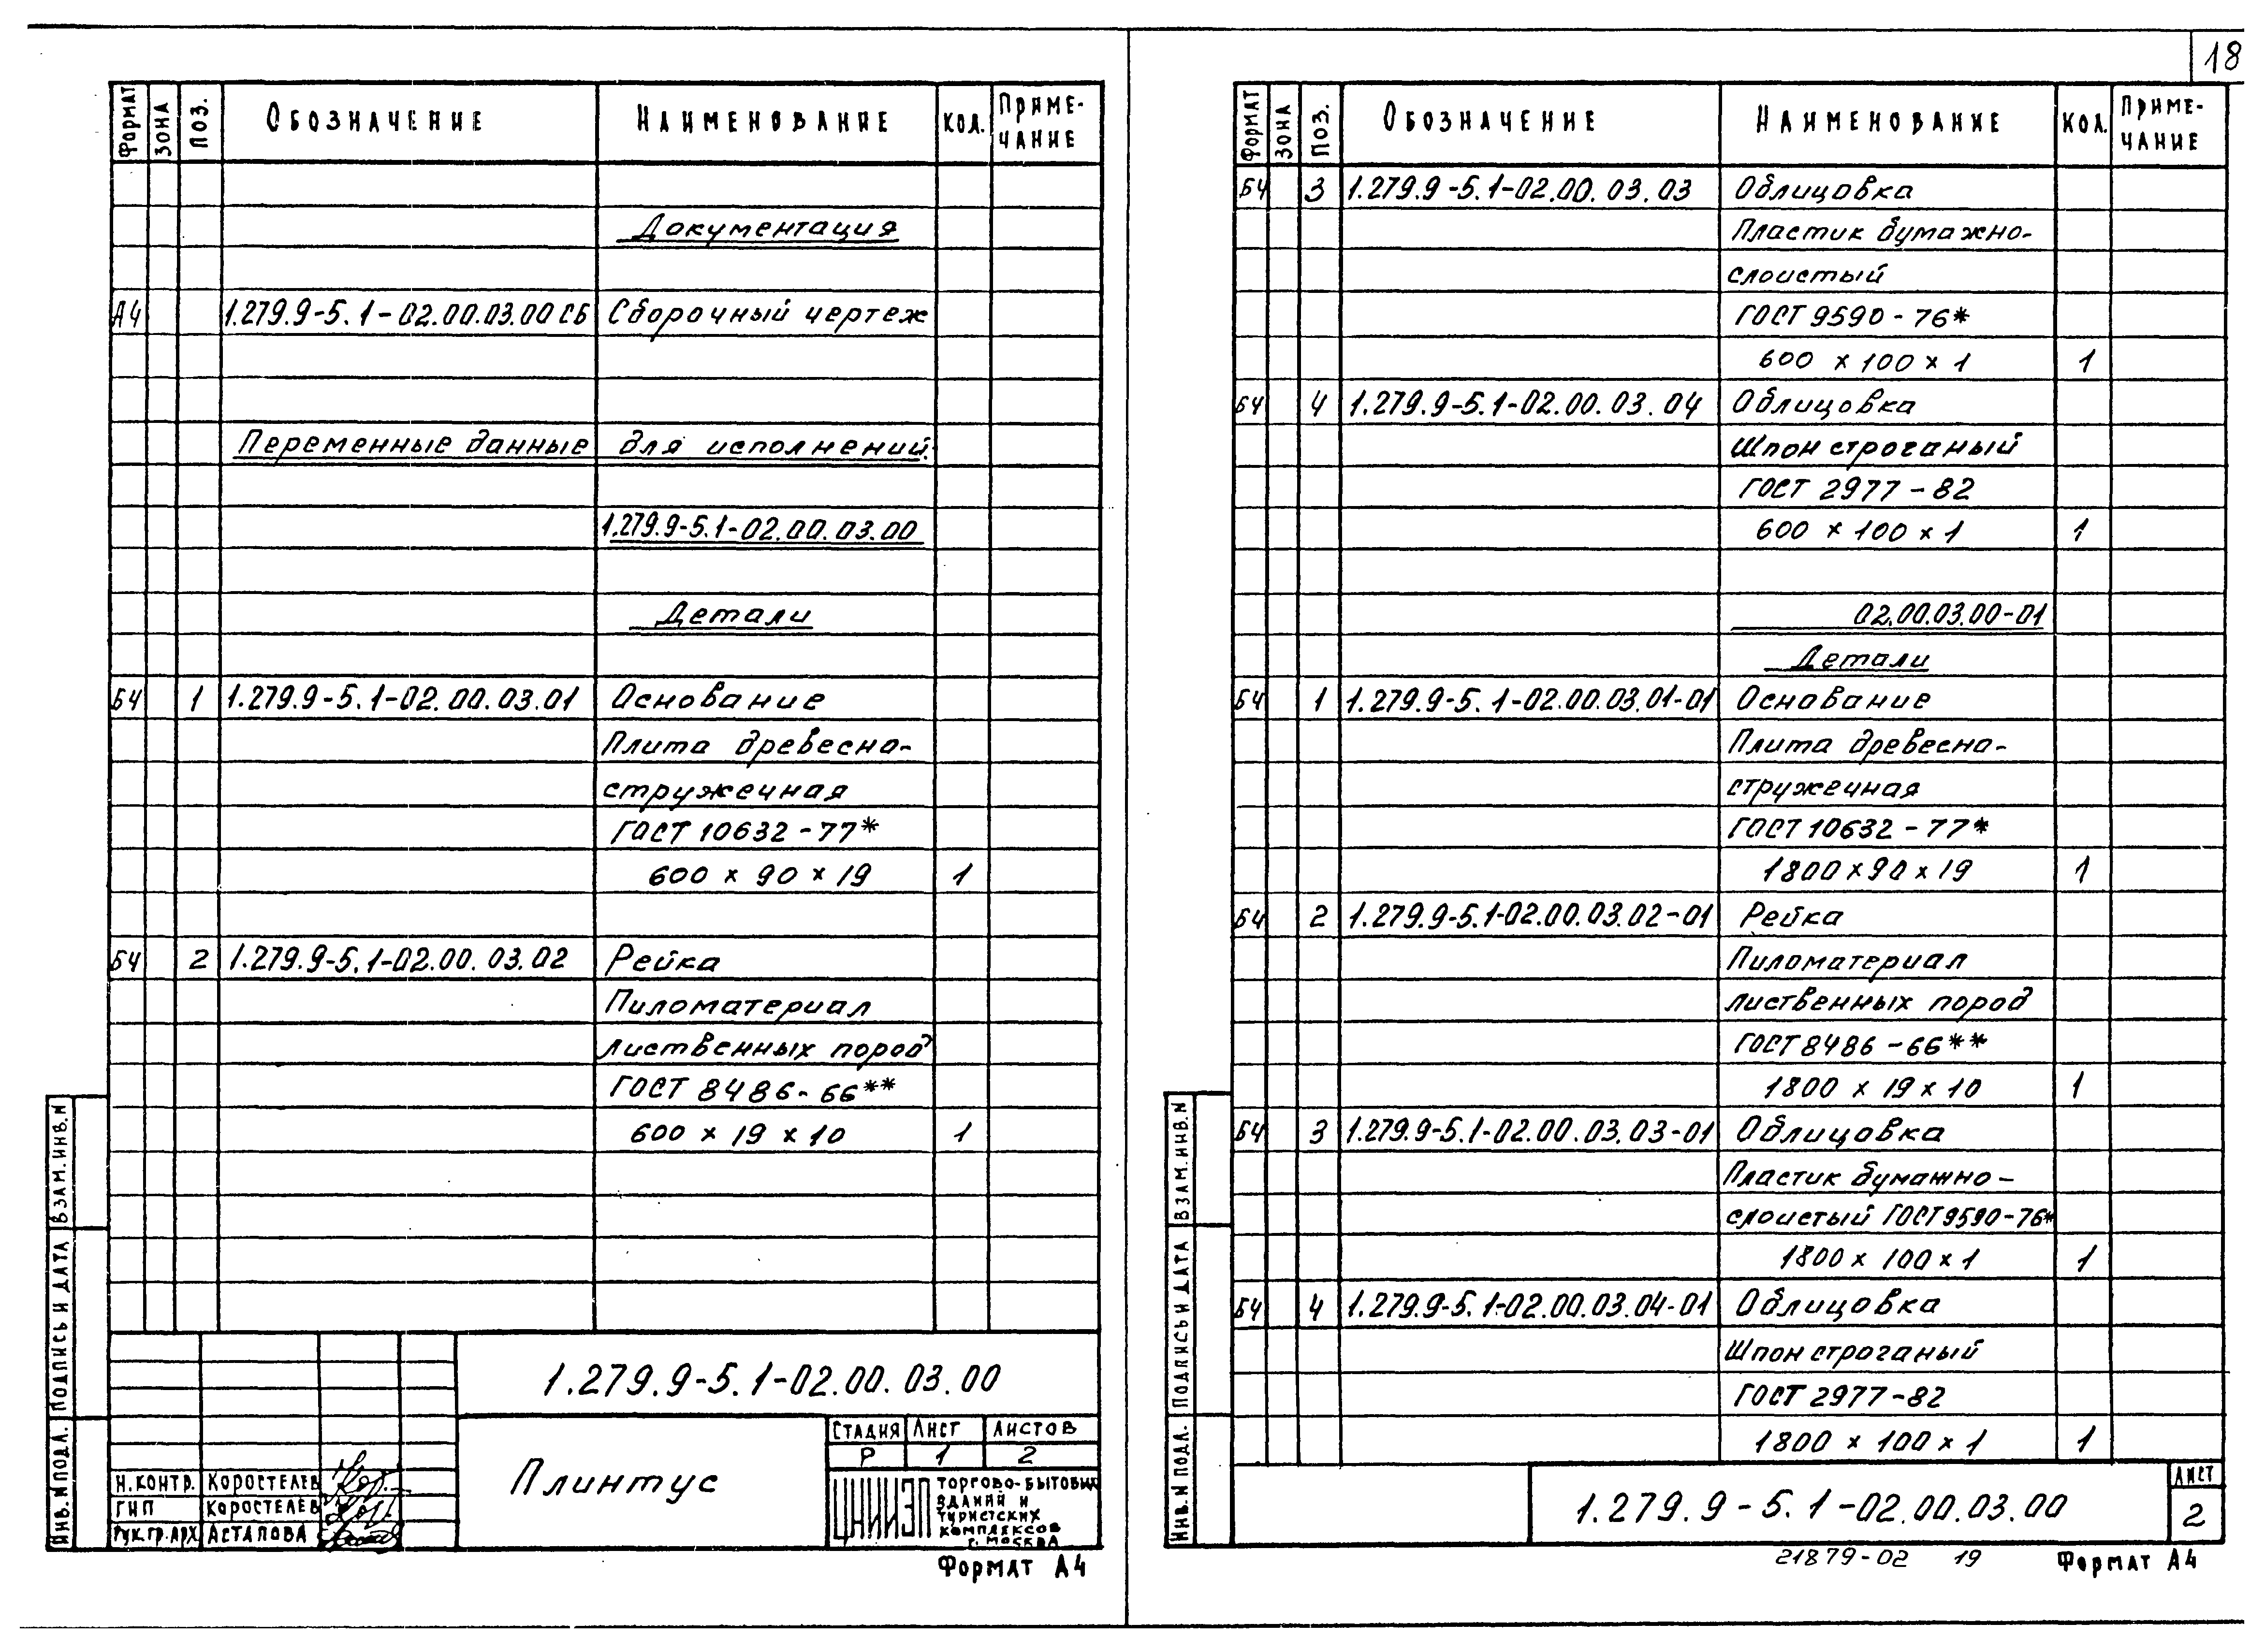 18
ФОРМАТ ЗОНА ПОЗ. ОБОЗНАЧЕНИЕ НАИМЕНОВАНИЕ КОЛ. ПРИМЕ-
ЧАНИЕ
Документация
А4 1.279.9-5.1-02.00.03.00 СБ Сборочный чертеж
Переменные данные для исполнений:
1.279.9-5.1-02.00.03.00
Детали
Б4 1 1.279.9-5.1-02.00.03.01 Основание
Плита древесно-
стружечная
ГОСТ 10632-77*
600 x 90 x 19 1
Б4 2 1.279.9-5.1-02.00.03.02 Рейка
Пиломатериал
лиственных пород
ГОСТ 8486-66**
600 x 19 x 10 1
ВЗАМ.ИНВ.N
ПОДПИСЬ И ДАТА
ИНВ.N ПОДЛ.
1.279.9-5.1-02.00.03.00
Плинтус
СТАДИЯ ЛИСТ ЛИСТОВ
Р 1 2
Н.КОНТР. КОРОСТЕЛЕВ
ГИП КОРОСТЕЛЕВ
РУК.ГР.АРХ АСТАПОВА
ЦНИИЭП ТОРГОВО-БЫТОВЫХ
ЗДАНИЙ И
ТУРИСТСКИХ
КОМПЛЕКСОВ
Г. МОСКВА
ФОРМАТ А4
ФОРМАТ ЗОНА ПОЗ. ОБОЗНАЧЕНИЕ НАИМЕНОВАНИЕ КОЛ. ПРИМЕ-
ЧАНИЕ
Б4 3 1.279.9-5.1-02.00.03.03 Облицовка
Пластик бумажно-
слоистый
ГОСТ 9590-76*
600 x 100 x 1 1
Б4 4 1.279.9-5.1-02.00.03.04 Облицовка
Шпон строганый
ГОСТ 2977-82
600 x 100 x 1 1
02.00.03.00-01
Детали
Б4 1 1.279.9-5.1-02.00.03.01-01 Основание
Плита древесно-
стружечная
ГОСТ 10632-77*
1800 x 90 x 19 1
Б4 2 1.279.9-5.1-02.00.03.02-01 Рейка
Пиломатериал
лиственных пород
ГОСТ 8486-66**
1800 x 19 x 10 1
Б4 3 1.279.9-5.1-02.00.03.03-01 Облицовка
Пластик бумажно-
слоистый ГОСТ 9590-76*
1800 x 100 x 1 1
Б4 4 1.279.9-5.1-02.00.03.04-01 Облицовка
Шпон строганый
ГОСТ 2977-82
1800 x 100 x 1 1
ВЗАМ.ИНВ.N
ПОДПИСЬ И ДАТА
ИНВ.N ПОДЛ.
1.279.9-5.1-02.00.03.00
ЛИСТ
2
21879-02 19 ФОРМАТ А4